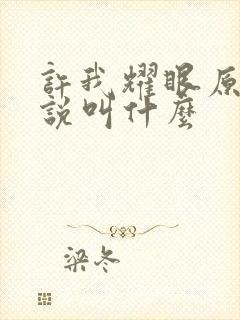 許我耀眼原
說叫什麼
梁冬